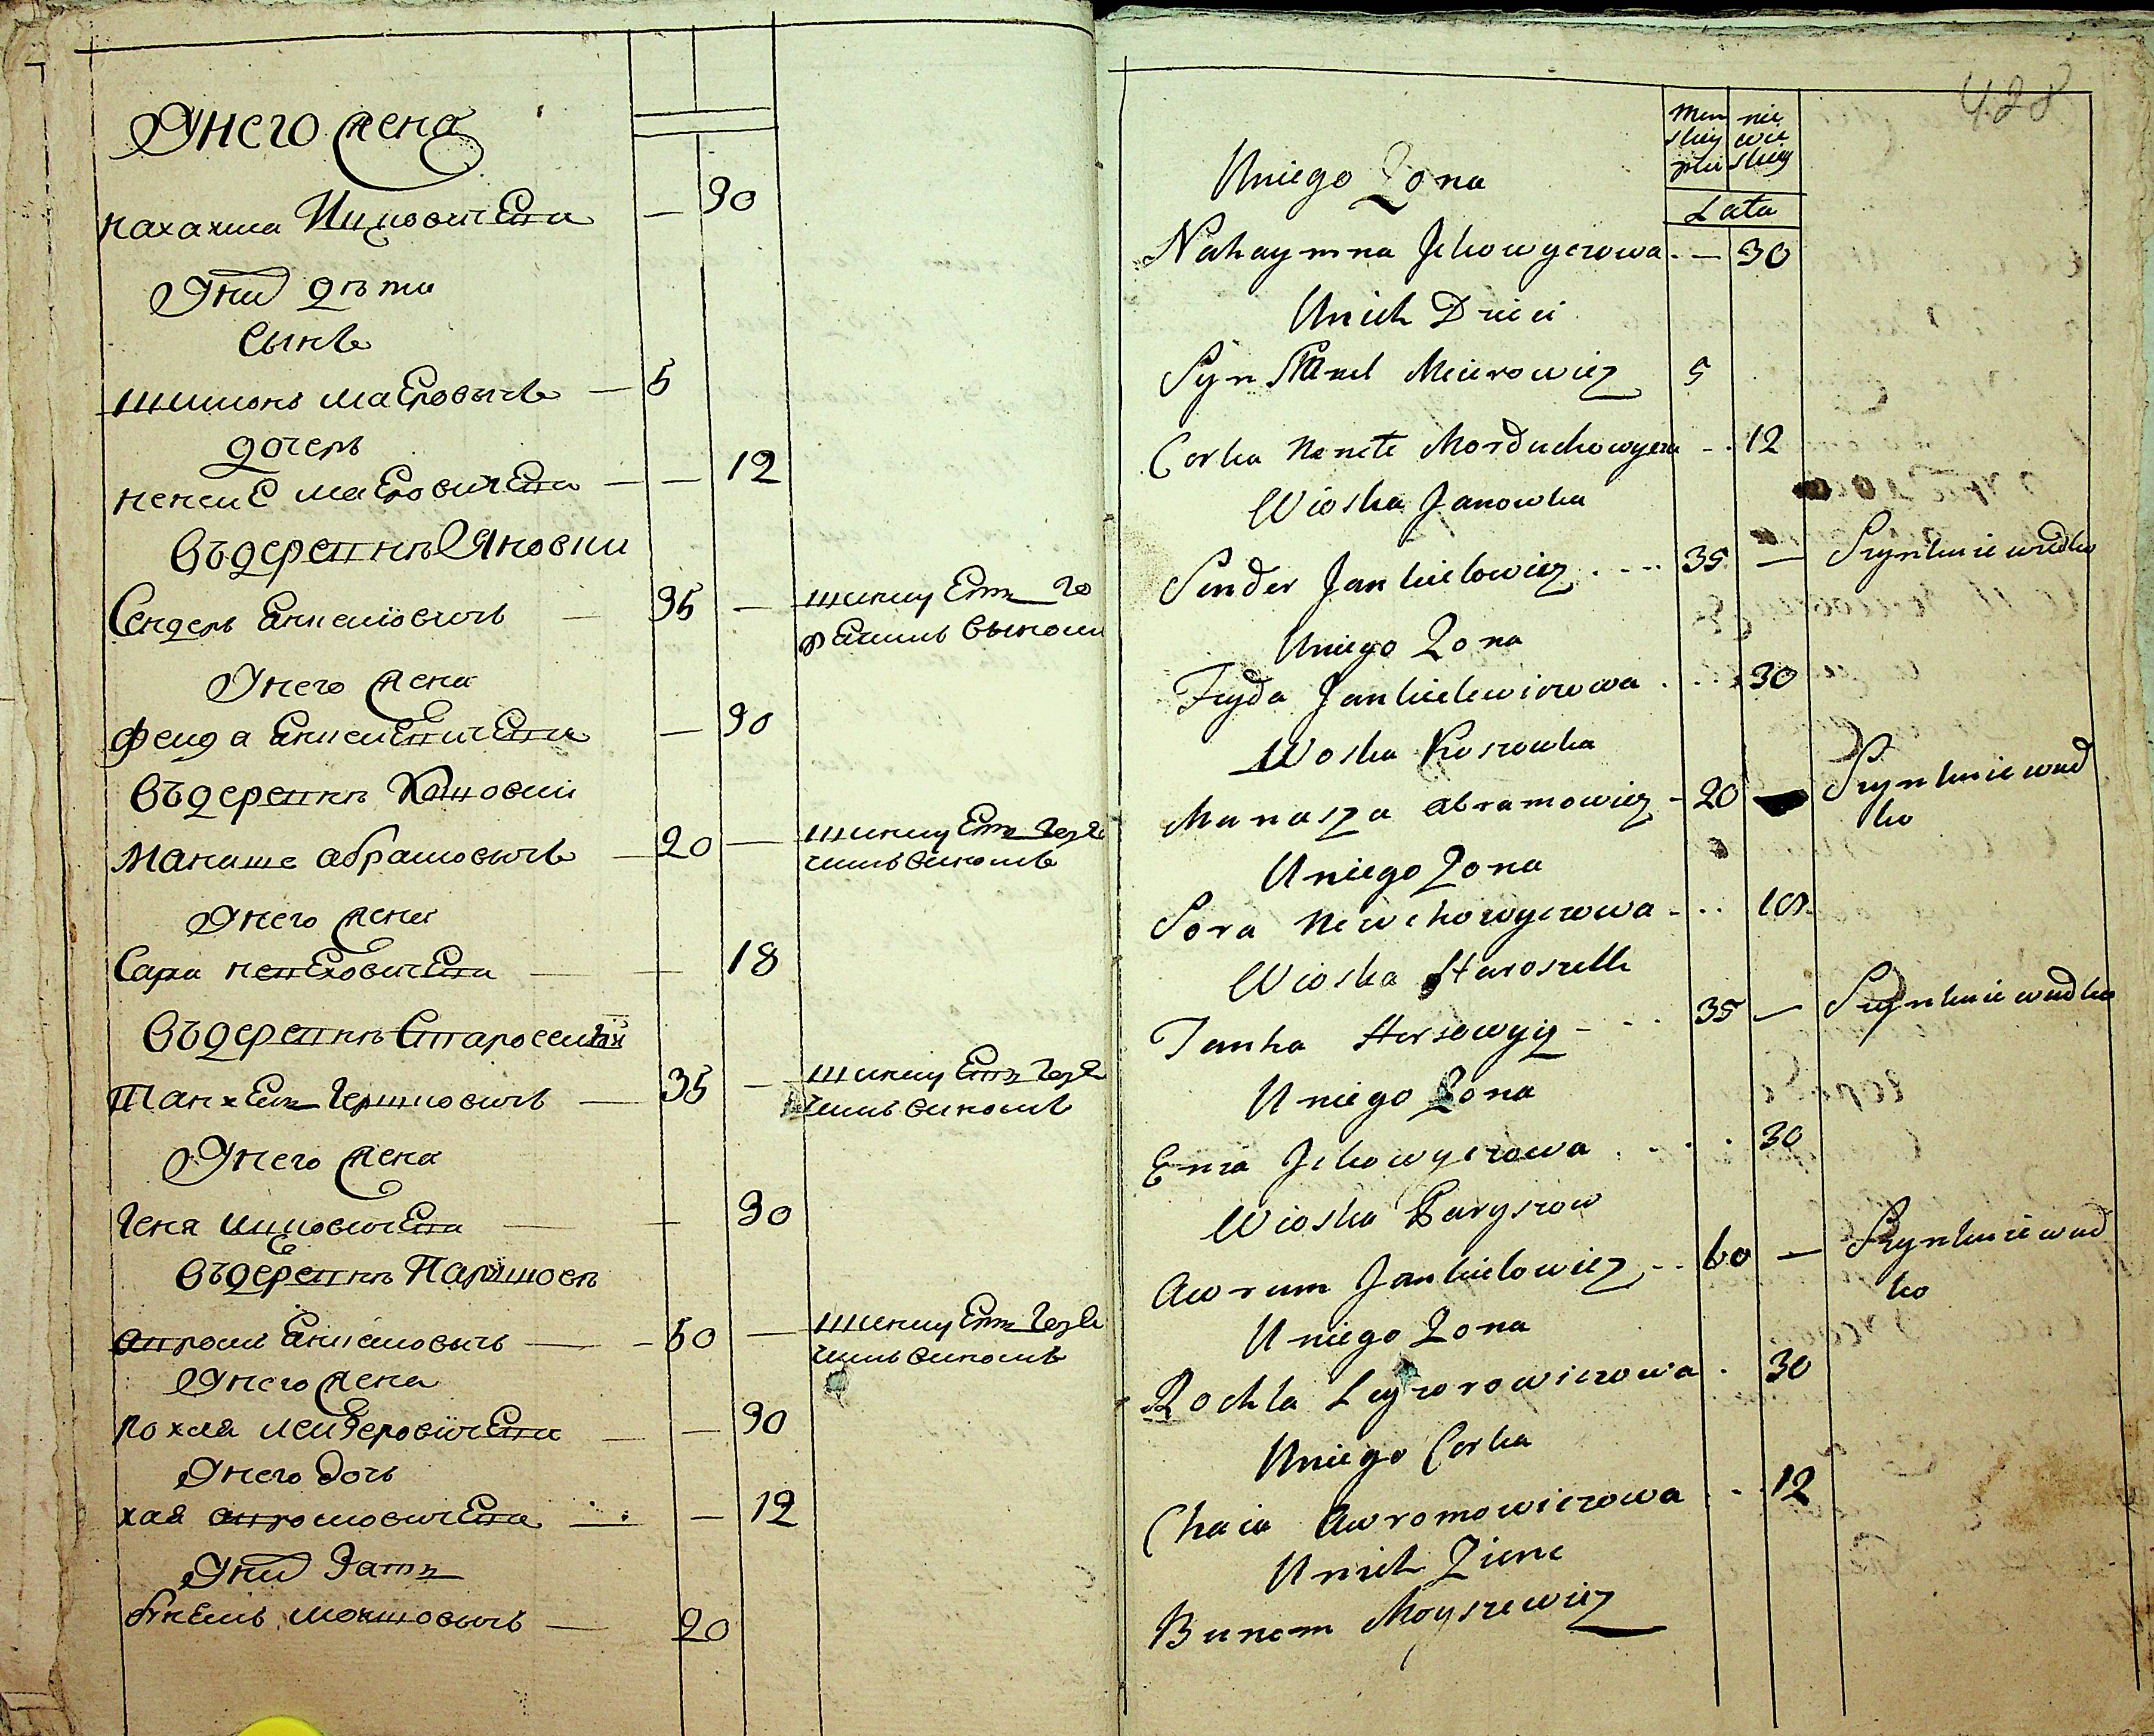 Унего жена
нахахма Ицковичева
—
30
Уних дѣти
Сынъ
шимонъ маеровычъ — 5
дочерь
ненсие маеровичева — — 12
Въдеревнѣ Яновки
Сендеръ Анкелювичъ — 35 — шинкуетъ го
релимъ выномъ
Унего жена
фейда Анкелевичева — 30
Въдеревнѣ
Манаше абрамовичъ — 20 — шинкуетъ горя
чимъ виномъ
Унего жена
Сара невеховичева — — 18
Въдеревнѣ Старосели
Танхель Гершковичъ — 35 — шинкуетъ горя
чимъ виномъ
Унего жена
Геня ицковичева — — 30
Въдеревнѣ Паришовѣ
авромъ Анкелювичъ — 50 — шинкуетъ горя
чимъ виномъ
Унего жена
рохля лейзеровичева — — 30
Унего дочь
хая авромовичева — — 12
Уних зать
бунемъ мошковычъ — 20
428
Men
skiey
płci
nie
wie
skiey
Lata
Uniego Zona
Nahaymna Jckowyczowa . — 30
Unich Dzieci
Syn Meierowicz 5
Corka Nencte Morduchowycza - . 12
Wioska Janowka
Sender Jankielowicz . - - - 35 — Szynkuie wudko
Uniego Zona
Fryda Jankielewiczowa . . . 30
Woska Koszowka
Manasza Abramowicz - 20 — Szynkuie wud
ko
Uniego Zona
Sora Newchowyczowa . . . 18
Wioska Staroszelk
Tanha Hersowyiz - - . 35 — Szynkuie wudko
Uniego Zona
Enia Jckowyczowa . - . . 30
Wioska Paryszow
Awrum Jankielowicz - - 60 — Szynkuie wud
ko
Uniego Zona
Rochla Leyzorowiczowa . 30
Uniego Corka
Chaia Awromowiczowa . - . 12
Unich Zienc
Bunem Moyszewicz